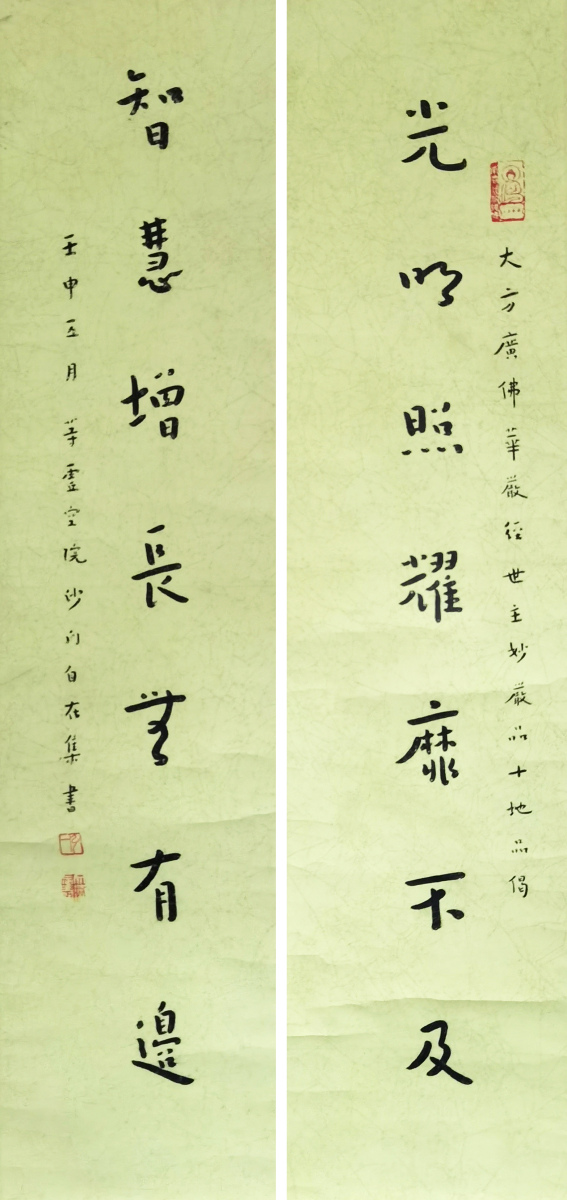 大方廣佛華嚴經世主妙嚴品十地品偈
光明照耀靡不及
智慧增長無有邊
壬申五月 等虛空院沙門自在集書